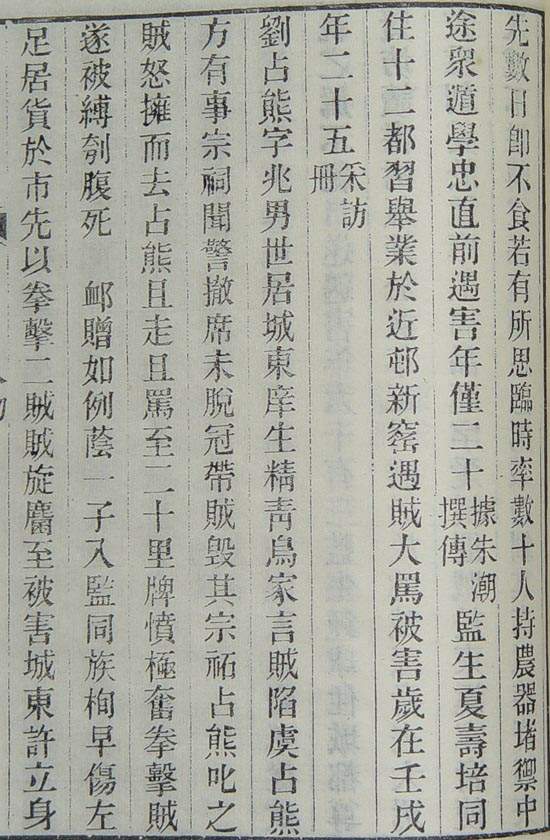 先數日卽不食若有所思臨時率數十人持農器堵禦中
途衆遁學忠直前遇害年僅二十據朱潮撰傳監生夏壽培同
住十二都習舉業於近邨新窰遇賊大罵被害歲在壬戌
年二十五采訪冊
劉占熊字兆男世居城東庠生精靑鳥家言賊陷虞占熊
方有事宗祠聞警撤席未脫冠帶賊毀其宗祏占熊叱之
賊怒擁而去占熊且走且罵至二十里牌憤極奮拳擊賊
遂被縛刳腹死 卹贈如例蔭一子入監同族栒早傷左
足居貨於市先以拳擊二賊賊旋麕至被害城東許立身